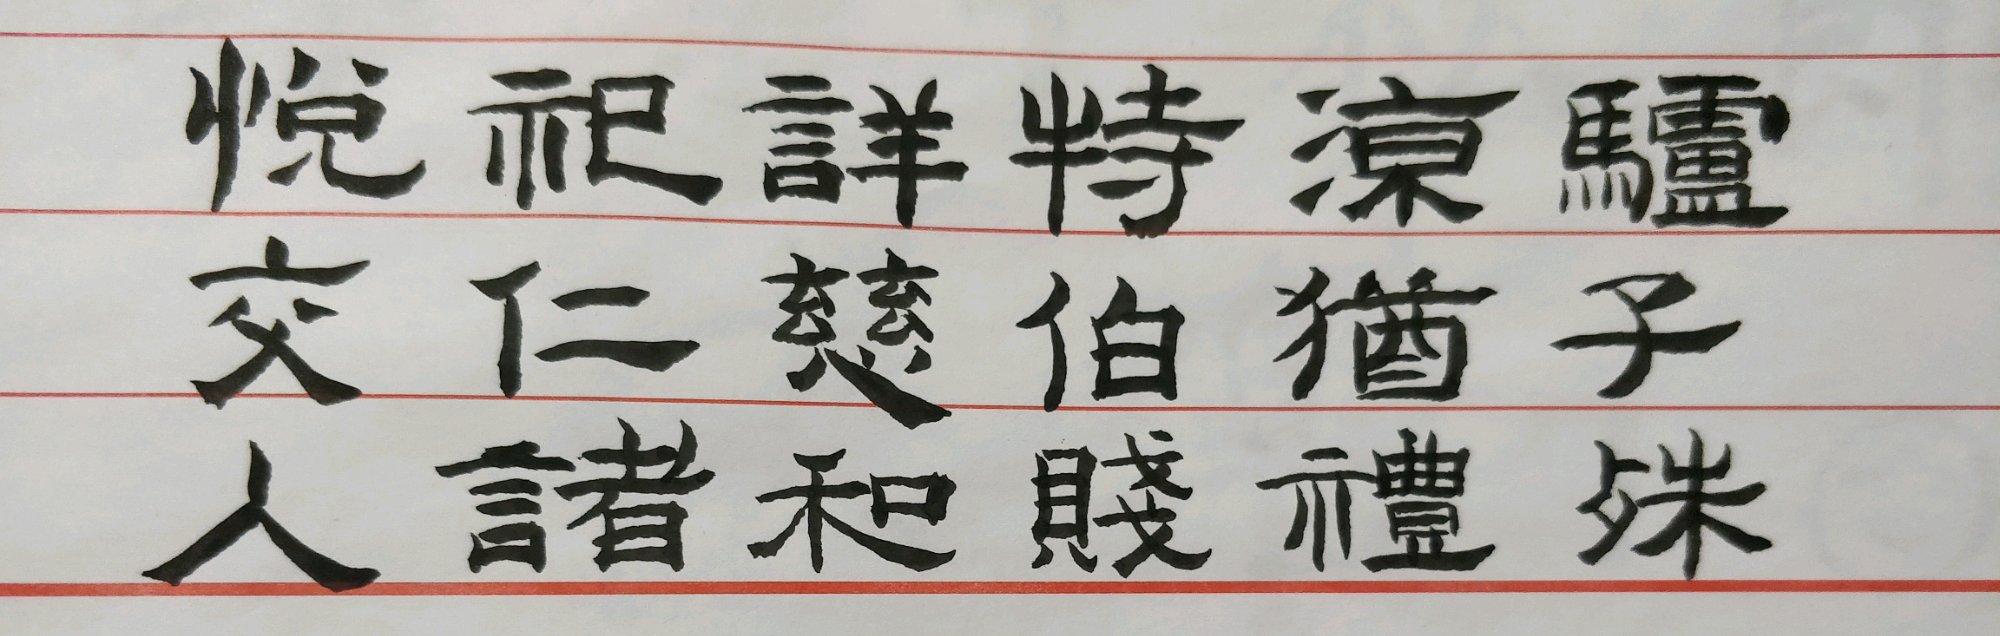 悅祀詳特涼驢
交仁慈伯猶子
人諸和賤禮殊